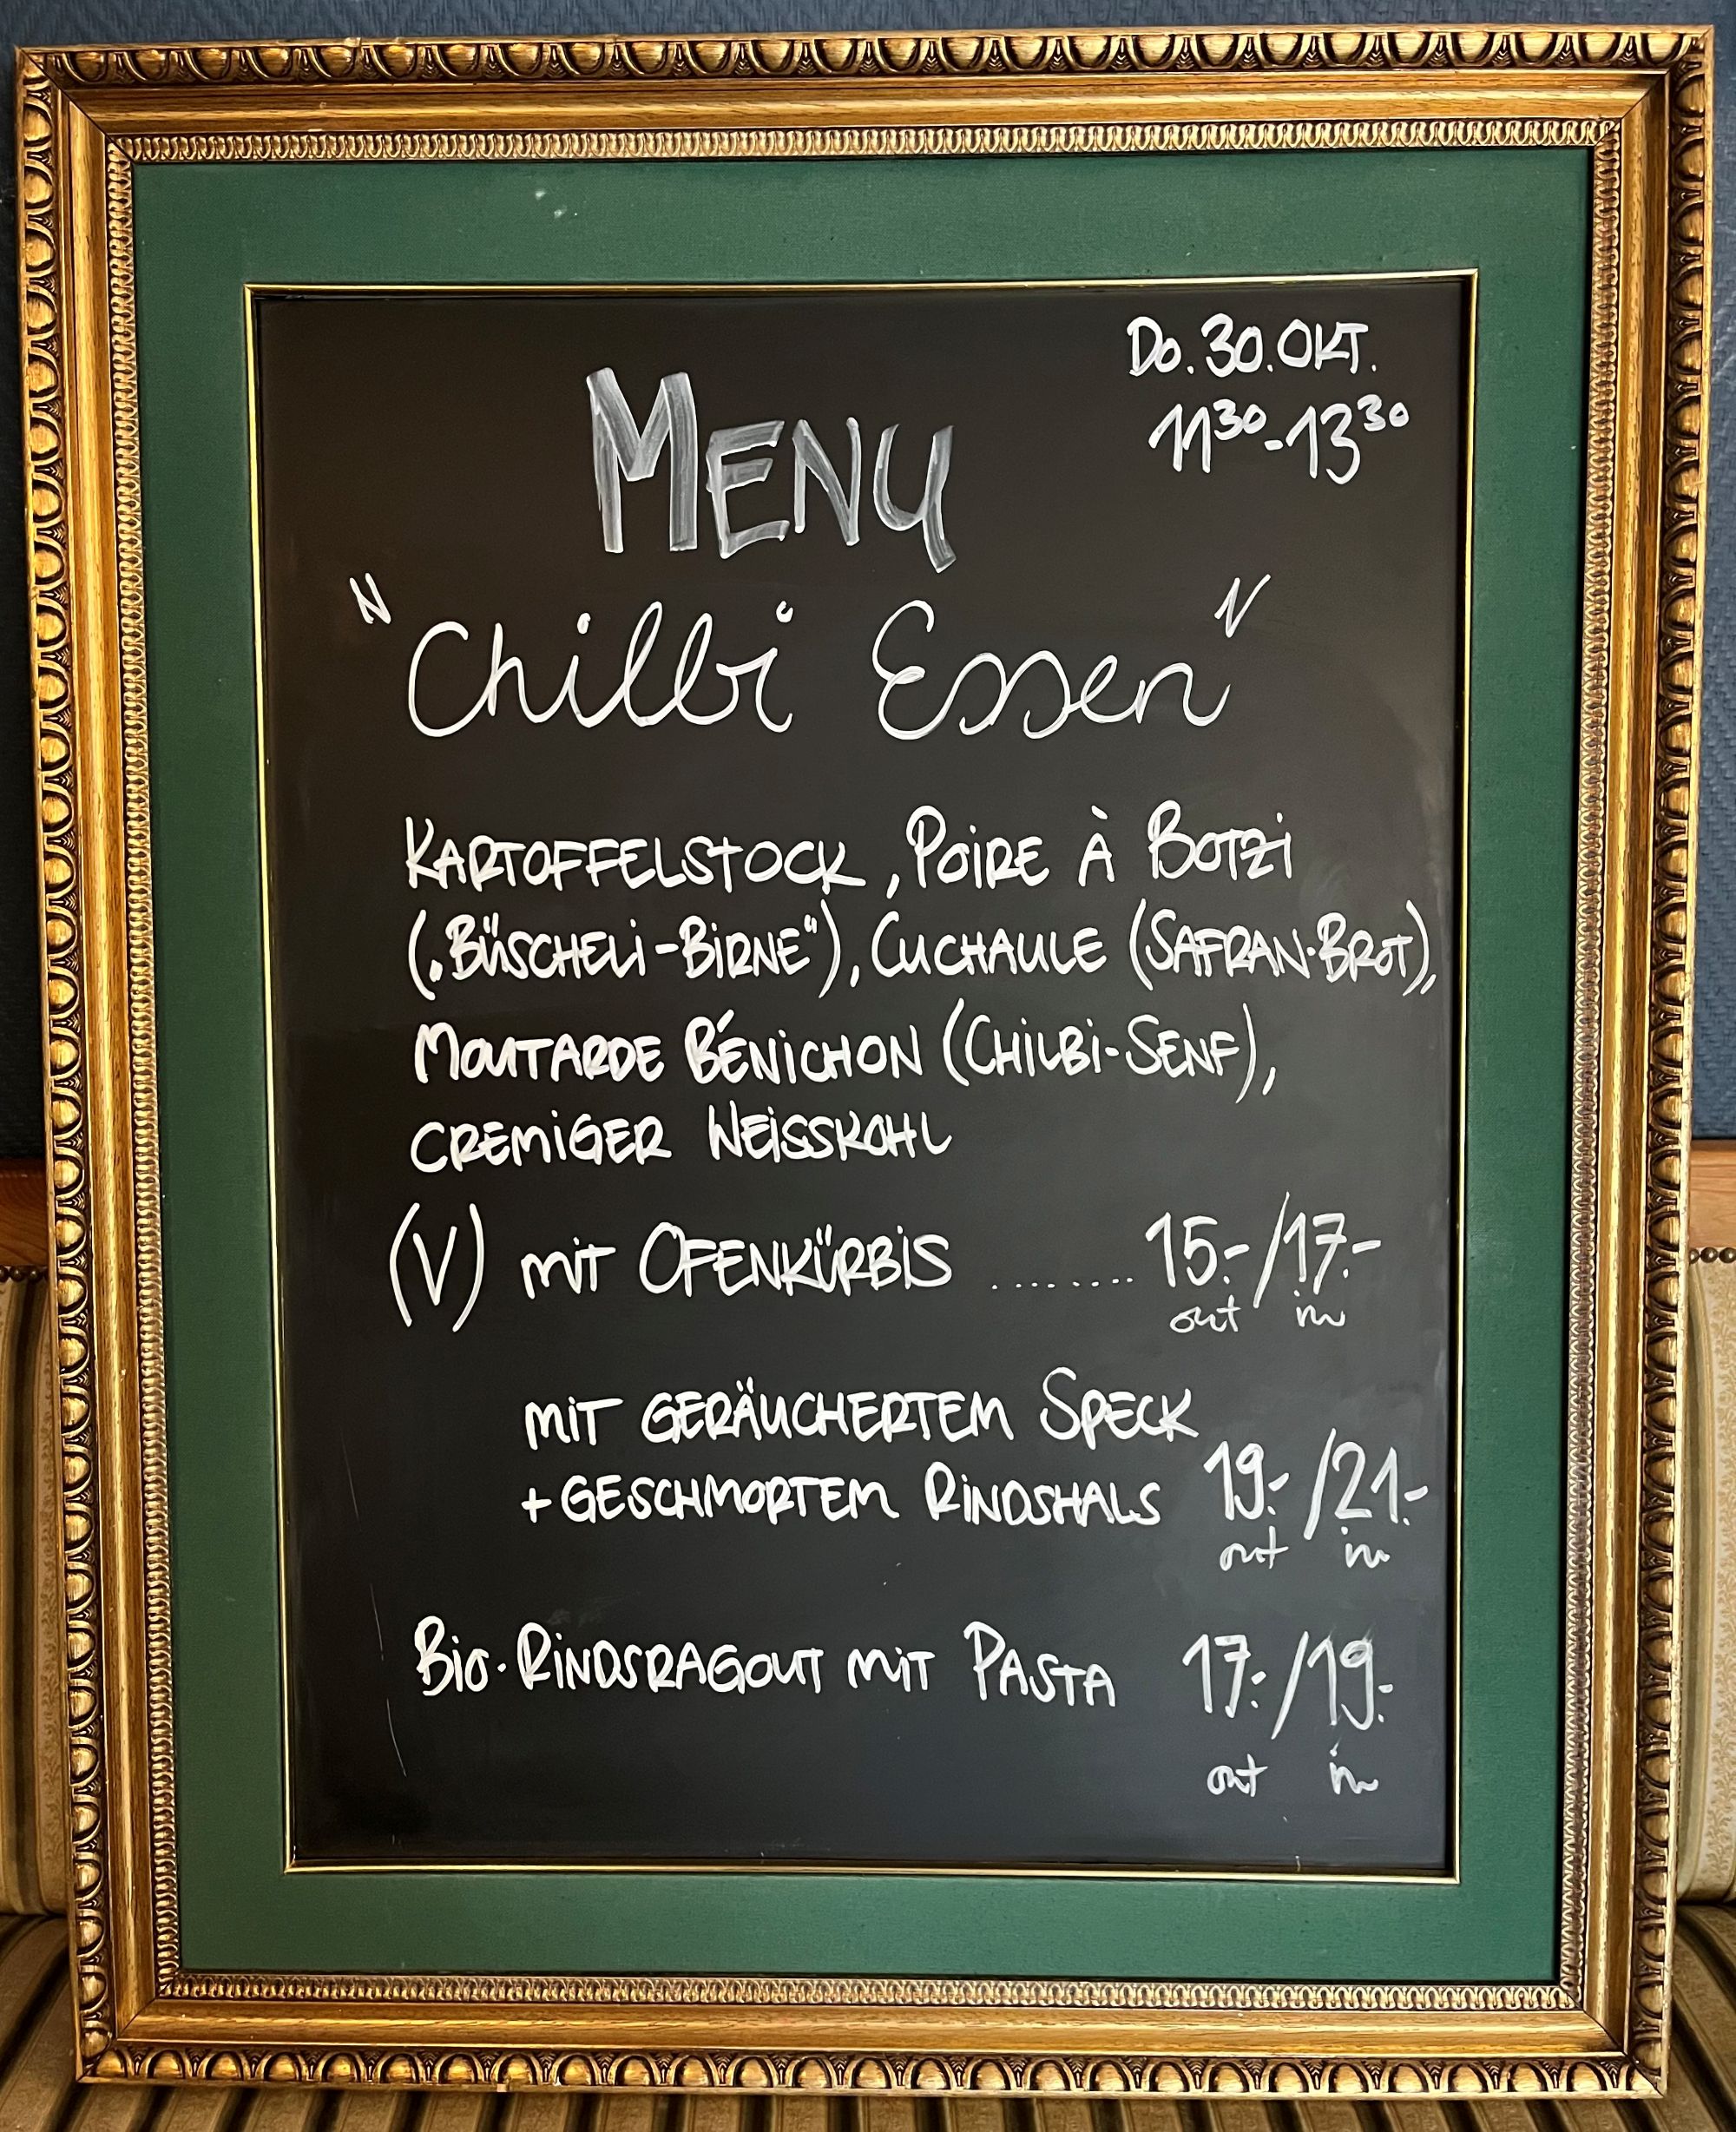 Do. 30. OKT.
11³⁰-13³⁰
MENU
"Chilbi Essen"
KARTOFFELSTOCK, POIRE À BOTZI
(„BÜSCHELI-BIRNE"), CUCHAULE (SAFRAN-BROT),
MOUTARDE BÉNICHON (CHILBI-SENF),
CREMIGER WEISSKOHL
(V) mit OFENKÜRBIS ........ 15.-/17.-
out in
mit GERÄUCHERTEM SPECK
+ GESCHMORTEM RINDSHALS 19.-/21.-
out in
Bio-RINDSRAGOUT mit PASTA 17.-/19.-
out in